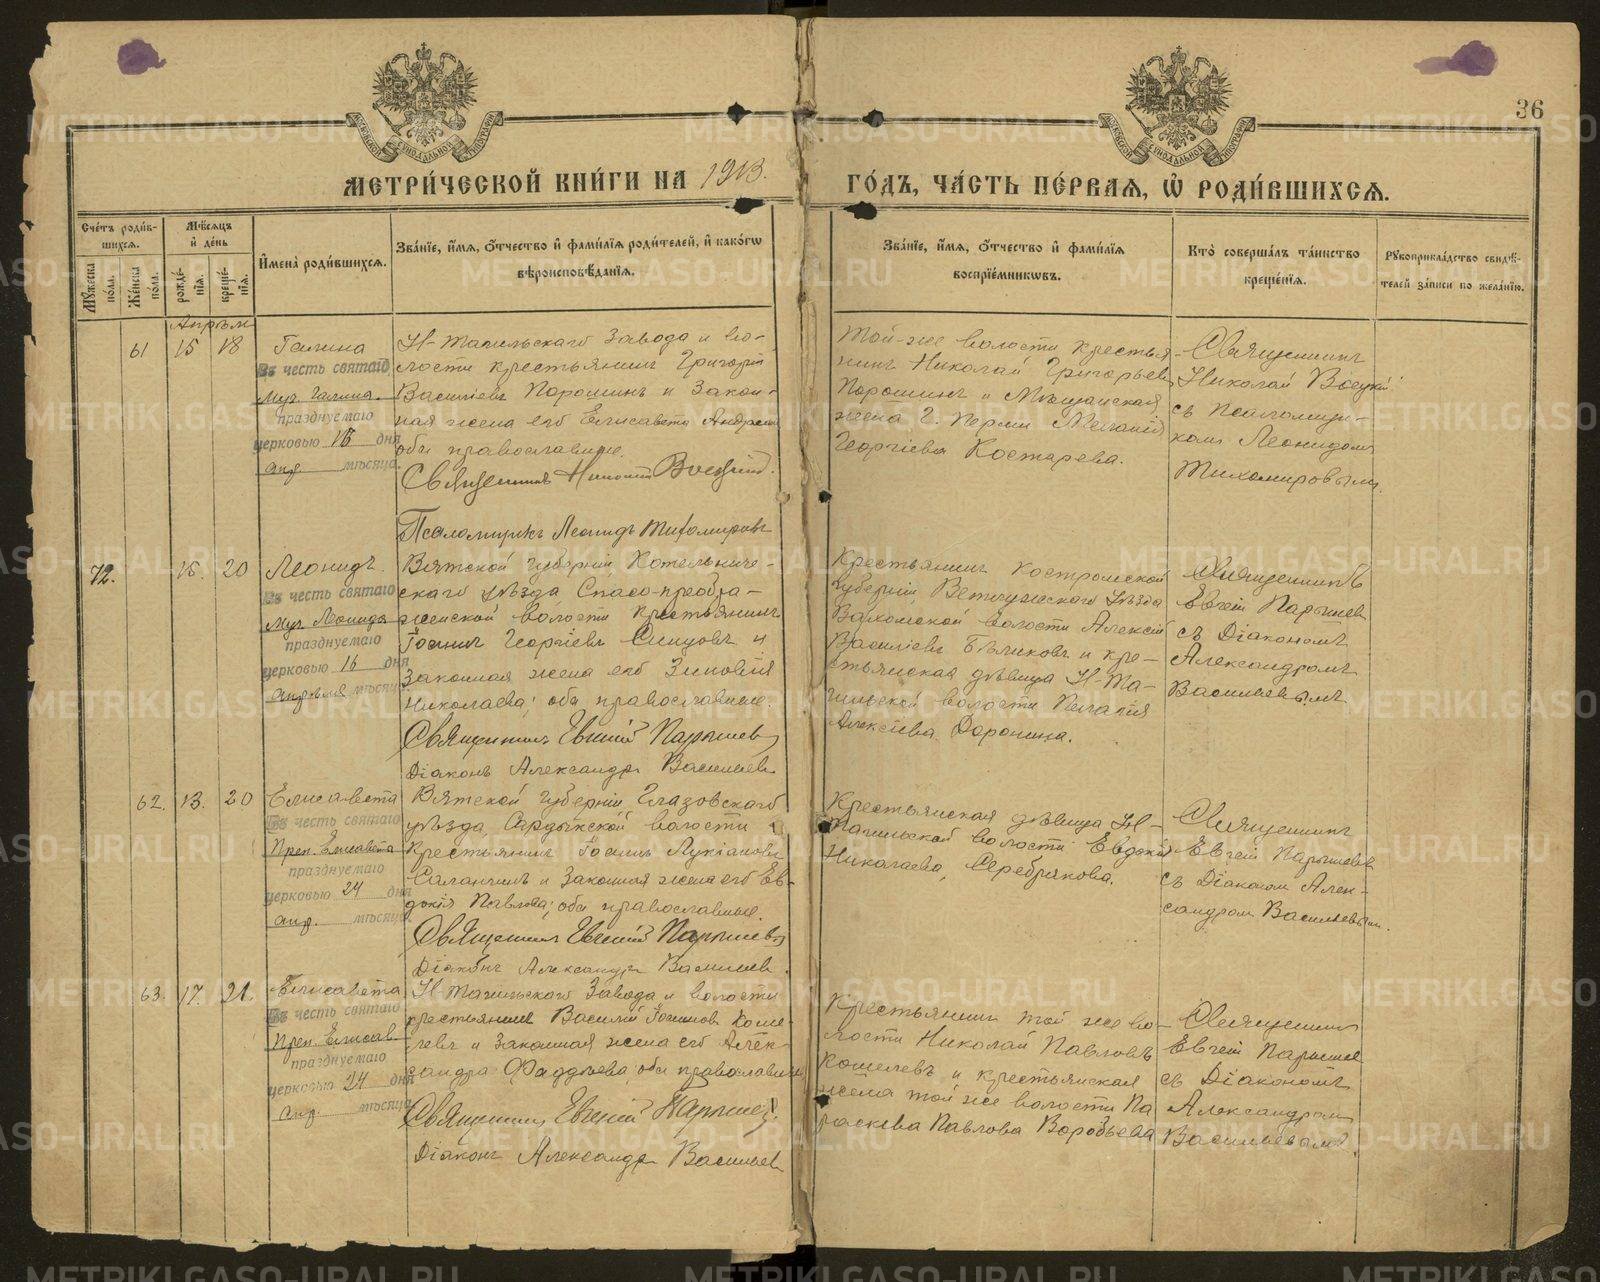 36
МЕТРИ́ЧЕСКОЙ КНИ́ГИ НА 1913.
ГО́ДЪ, ЧА́СТЬ ПЕ́РВАЯ, Ѽ РОДИ́ВШИХСЯ.
Сче́тъ роди́в-
шихся.
Мѣ́сяцъ
и де́нь
Мꙋ́жеска по́ла.
Же́нска по́ла.
рожде́-
нія.
креще́-
нія.
И҆мена̀ роди́вшихся.
Зва́ніе, и҆́мя, ѻ҆́тчество и҆ фами́лія роди́телей, и҆ како́гѡ
вѣроисповѣ́данія.
Зва́ніе, и҆́мя, ѻ҆́тчество и҆ фами́лія
воспріе́мникѡвъ.
Кто̀ соверша́лъ та́инство
креще́нія.
Рꙋкоприкла́дство свидѣ́-
телей за́писи по жела́нію.
Апрѣль
61 15 18
Галина
Въ честь святаго
Муч. Галина.
празднуемаго
церковью 16 дня
апр. мѣсяца.
Н-Тагильскаго Завода и во-
лости крестьянинъ Григорій
Васильевъ Порошинъ и закон-
ная жена его Елисавета Андреева
оба православные.
Священникъ Николай
Псаломщикъ Леонидъ Тихомировъ
Той-же волости крестья-
нинъ Николай Григорьевъ
Порошинъ и Мѣщанская
жена г. Перми
Георгіева Костарева.
Священникъ
Николай
съ Псаломщи-
комъ Леонидомъ
Тихомировымъ.
72. 15. 20
Леонидъ.
Въ честь святаго
Муч. Леонида
празднуемаго
церковью 16 дня
апрѣля мѣсяца
Вятской губерніи, Котельниче-
скаго уѣзда Спасо-преобра-
женской волости крестьянинъ
Іоаннъ Георгіевъ Синцовъ и
законная жена его Зиновія
Николаева; оба православные.
Священникъ Евгеній Парышев
Діаконъ Александръ Васильевъ
Крестьянинъ Костромской
губерніи Ветлужскаго уѣзда
Вахомской волости Алексій
Васильевъ Бѣляковъ и кре-
стьянская дѣвица Н-Та-
гильской волости Пелагія
Алексіева Доронина.
Священникъ
Евгеній Парышев
съ Діакономъ
Александромъ
Васильевымъ
62. 13. 20
Елисавета
Въ честь святаго
Преп. Елисавета
празднуемаго
церковью 24 дня
апр. мѣсяца
Вятской губерніи Глазовскаго
уѣзда, волости
крестьянинъ Іоаннъ Лукіановъ
и законная жена его Ев-
докія Павлова; оба православные.
Священникъ Евгеній Парышевъ
Діаконъ Александръ Васильевъ.
Крестьянская дѣвица Н-
Тагильской волости Евдокія
Николаева, Серебрякова.
Священникъ
Евгеній Парышевъ
съ Діаконом Алек-
сандром Васильевым.
63. 17. 21.
Елисавета
Въ честь святаго
Преп. Елисав.
празднуемаго
церковью 24 дня
апр. мѣсяца
Н Тагильскаго Завода и волости
крестьянинъ Василій Іоанновъ Коше-
левъ и законная жена его Алек-
сандра Фаддѣева оба православные
Священникъ Евгеній Парышев.
Діаконъ Александръ Васильевъ
Крестьянинъ той же во-
лости Николай Павловъ
Кошелевъ и крестьянская
жена той же волости Па
раскева Павлова Воробьева
Священникъ
Евгеній Парышев
съ Діакономъ
Александром
Васильевымъ.